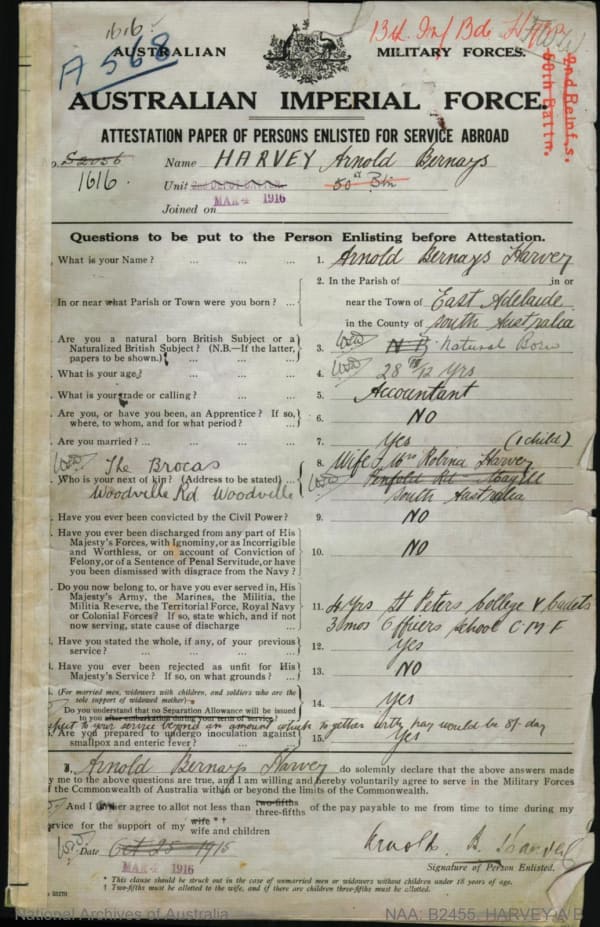 1616.
13th Inf Bde
A 568
AUSTRALIAN MILITARY FORCES.
2nd Reinf.s.
50th Battn.
AUSTRALIAN IMPERIAL FORCE.
ATTESTATION PAPER OF PERSONS ENLISTED FOR SERVICE ABROAD
S2056 Name HARVEY Arnold Bernays
1616. Unit 50th Btn
Joined on MAR 4 1916
Questions to be put to the Person Enlisting before Attestation.
What is your Name ? ... ... ... 1. Arnold Bernays Harvey
2. In the Parish of in or
In or near what Parish or Town were you born ? ... near the Town of East Adelaide
in the County of South Australia
Are you a natural born British Subject or a
Naturalized British Subject ? (N.B.—If the latter,
papers to be shown.) 3. N B Natural Born
What is your age? ... ... ... 4. 28 /12 yrs
What is your trade or calling ? ... ... 5. Accountant
Are you, or have you been, an Apprentice ? If so,
where, to whom, and for what period ? ... 6. NO
Are you married ? ... ... ... 7. Yes (1 child)
The Brocas 8. Wife Mrs Robina Harvey
Who is your next of kin ? (Address to be stated) ... Penfold Rd Magill
Woodville Rd Woodville South Australia
Have you ever been convicted by the Civil Power ? ... 9. NO
Have you ever been discharged from any part of His
Majesty's Forces, with Ignominy, or as Incorrigible
and Worthless, or on account of Conviction of
Felony, or of a Sentence of Penal Servitude, or have
you been dismissed with disgrace from the Navy ? 10. NO
Do you now belong to, or have you ever served in, His
Majesty's Army, the Marines, the Militia, the
Militia Reserve, the Territorial Force, Royal Navy
or Colonial Forces? If so, state which, and if not
now serving, state cause of discharge 11. 4 yrs St Peters College Cadets
3 mos Officers School C M F
Have you stated the whole, if any, of your previous
service ? ... ... 12. Yes
Have you ever been rejected as unfit for His
Majesty's Service ? If so, on what grounds ? ... 13. NO
(For married men, widowers with children, and soldiers who are the
sole support of widowed mother)
Do you understand that no Separation Allowance will be issued
to you after embarkation during your term of service? 14. Yes
respect to your service beyond an amount which together with pay would be 8/- day
Are you prepared to undergo inoculation against
smallpox and enteric fever? ... 15. Yes
I, Arnold Bernays Harvey do solemnly declare that the above answers made
by me to the above questions are true, and I am willing and hereby voluntarily agree to serve in the Military Forces
of the Commonwealth of Australia within or beyond the limits of the Commonwealth.
And I further agree to allot not less than two-fifths three-fifths of the pay payable to me from time to time during my
service for the support of my wife * † wife and children
Date Oct 25 1915
MAR 4 1916
Arnold B. Harvey
Signature of Person Enlisted.
* This clause should be struck out in the case of unmarried men or widowers without children under 18 years of age.
† Two-fifths must be allotted to the wife, and if there are children three-fifths must be allotted.
National Archives of Australia
NAA: B2455, HARVEY A B